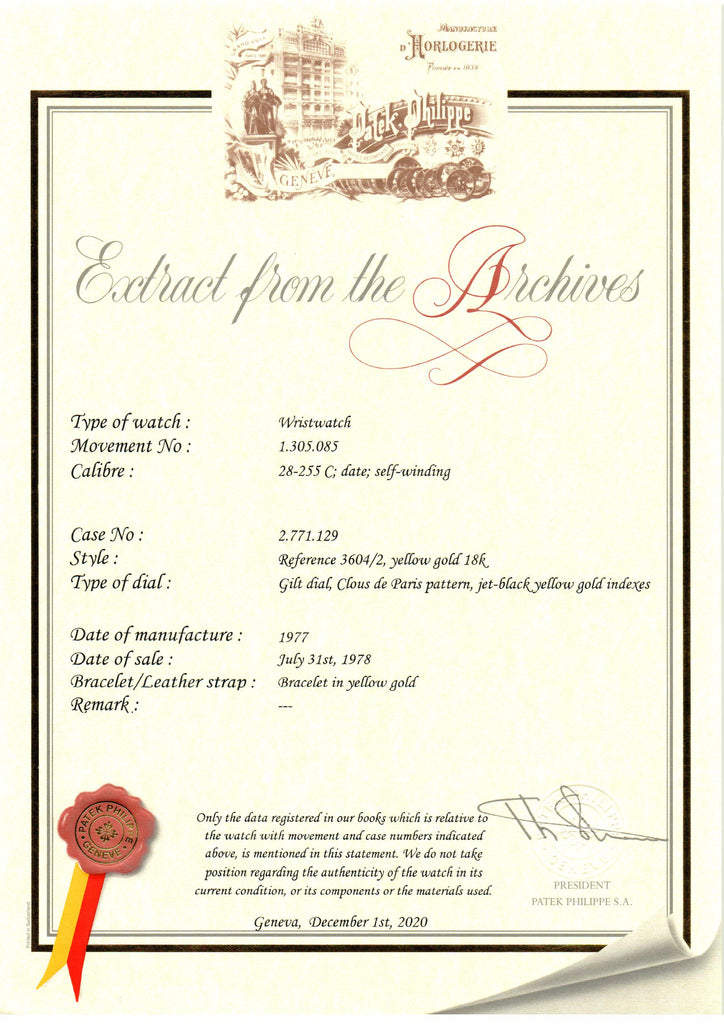 GRAND PRIX
MANUFACTURE
D'HORLOGERIE
FONDÉE EN 1839
Patek Philippe
GENÈVE
Extract from the Archives
Type of watch : Wristwatch
Movement No : 1.305.085
Calibre : 28-255 C; date; self-winding
Case No : 2.771.129
Style : Reference 3604/2, yellow gold 18k
Type of dial : Gilt dial, Clous de Paris pattern, jet-black yellow gold indexes
Date of manufacture : 1977
Date of sale : July 31st, 1978
Bracelet/Leather strap : Bracelet in yellow gold
Remark : ---
Only the data registered in our books which is relative to
the watch with movement and case numbers indicated
above, is mentioned in this statement. We do not take
position regarding the authenticity of the watch in its
current condition, or its components or the materials used.
Geneva, December 1st, 2020
PATEK PHILIPPE
GENEVE
PRESIDENT
PATEK PHILIPPE S.A.
Printed in Switzerland